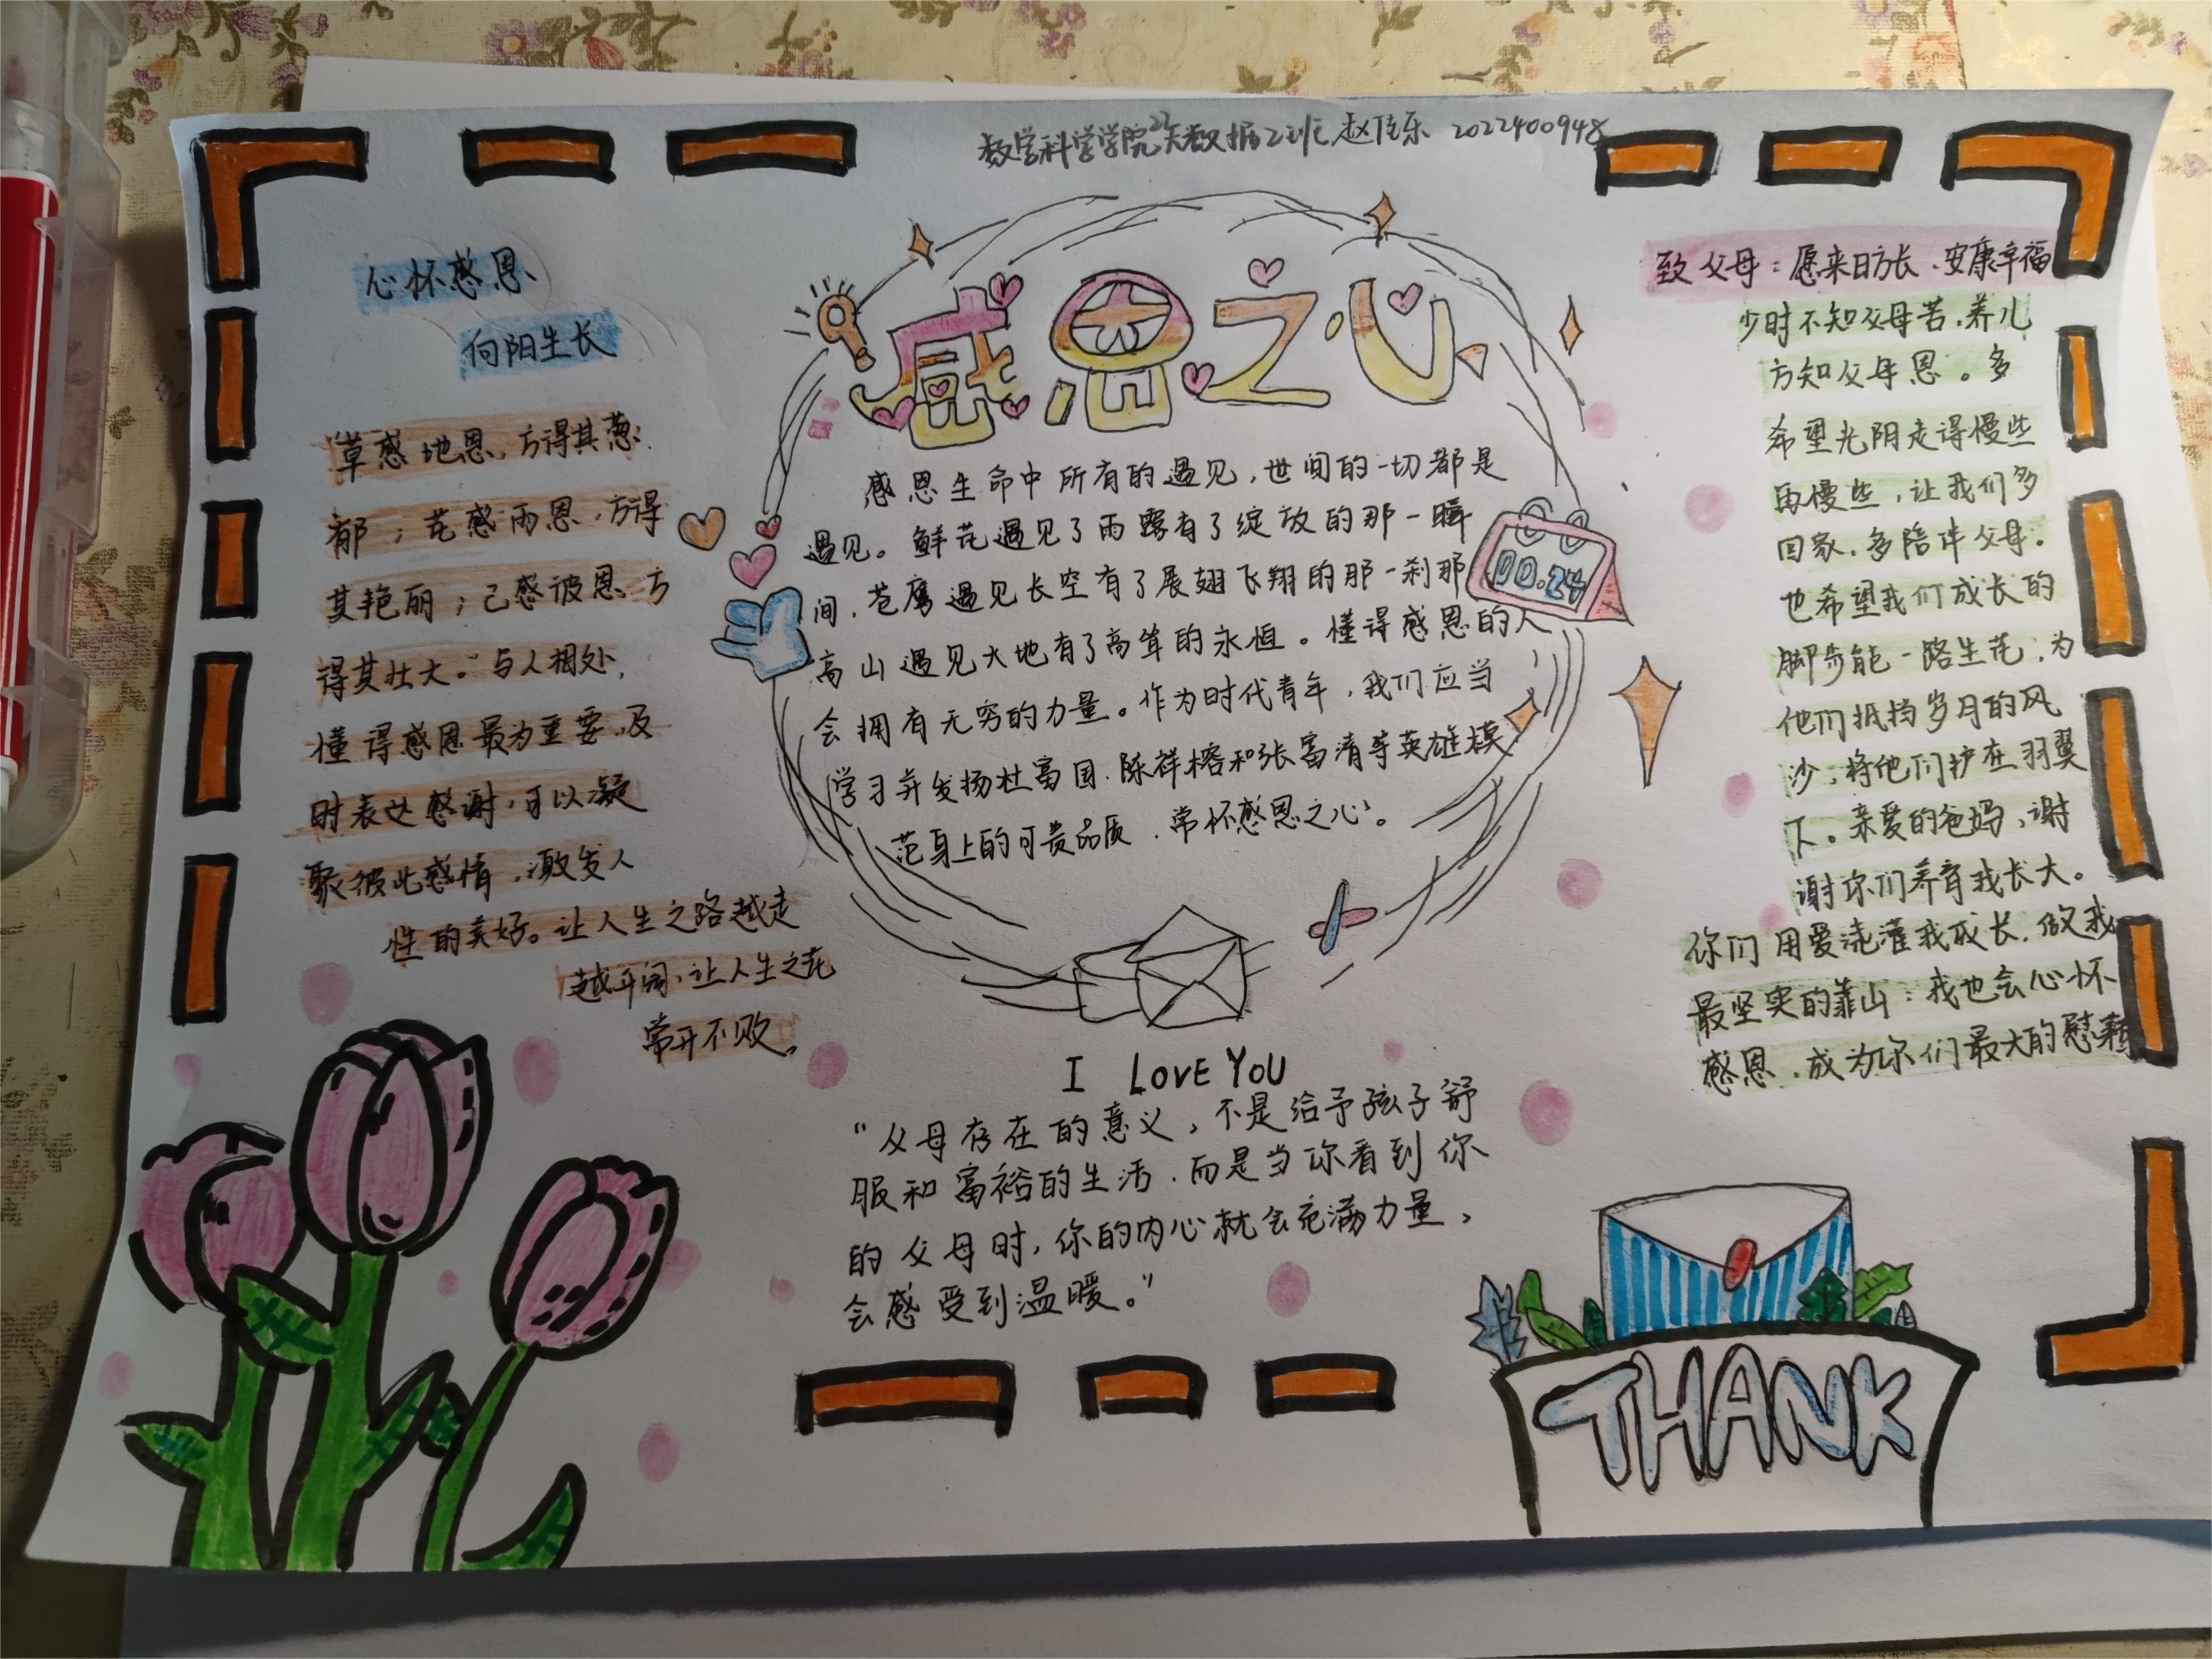 数学科学学院22大数据2班 赵佳乐 2022400948
心怀感恩、
向阳生长
感恩之心
致父母：愿来日方长、安康幸福
"草感地恩，方得其葱
郁；花感雨恩，方得
其艳丽；己感彼恩，方
得其壮大。"与人相处，
懂得感恩最为重要，及
时表达感谢，可以凝
聚彼此感情，激发人
性的美好。让人生之路越走
越开阔，让人生之花
常开不败。
感恩生命中所有的遇见，世间的一切都是
遇见。鲜花遇见了雨露有了绽放的那一瞬
间，苍鹰遇见长空有了展翅飞翔的那一刹那
高山遇见大地有了高耸的永恒。懂得感恩的人
会拥有无穷的力量。作为时代青年，我们应当
学习并发扬杜富国、陈祥榕和张富清等英雄模
范身上的可贵品质，常怀感恩之心。
00:24
少时不知父母苦，养儿
方知父母恩。多
希望光阴走得慢些
再慢些，让我们多
回家，多陪伴父母。
也希望我们成长的
脚步能一路生花，为
他们抵挡岁月的风
沙，将他们护在羽翼
下。亲爱的爸妈，谢
谢你们养育我长大。
你们用爱浇灌我成长，做我
最坚实的靠山：我也会心怀
感恩，成为你们最大的慰藉
I LOVE YOU
"父母存在的意义，不是给予孩子舒
服和富裕的生活，而是当你看到你
的父母时，你的内心就会充满力量，
会感受到温暖。"
THANK